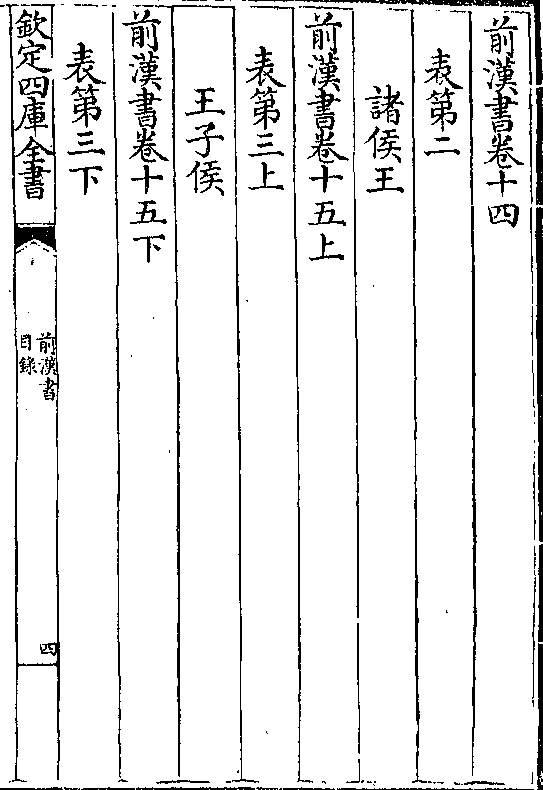 前漢書卷十四
表第二
諸侯王
前漢書卷十五上
表第三上
王子侯
前漢書卷十五下
表第三下
欽定四庫全書
前漢書
目錄
四